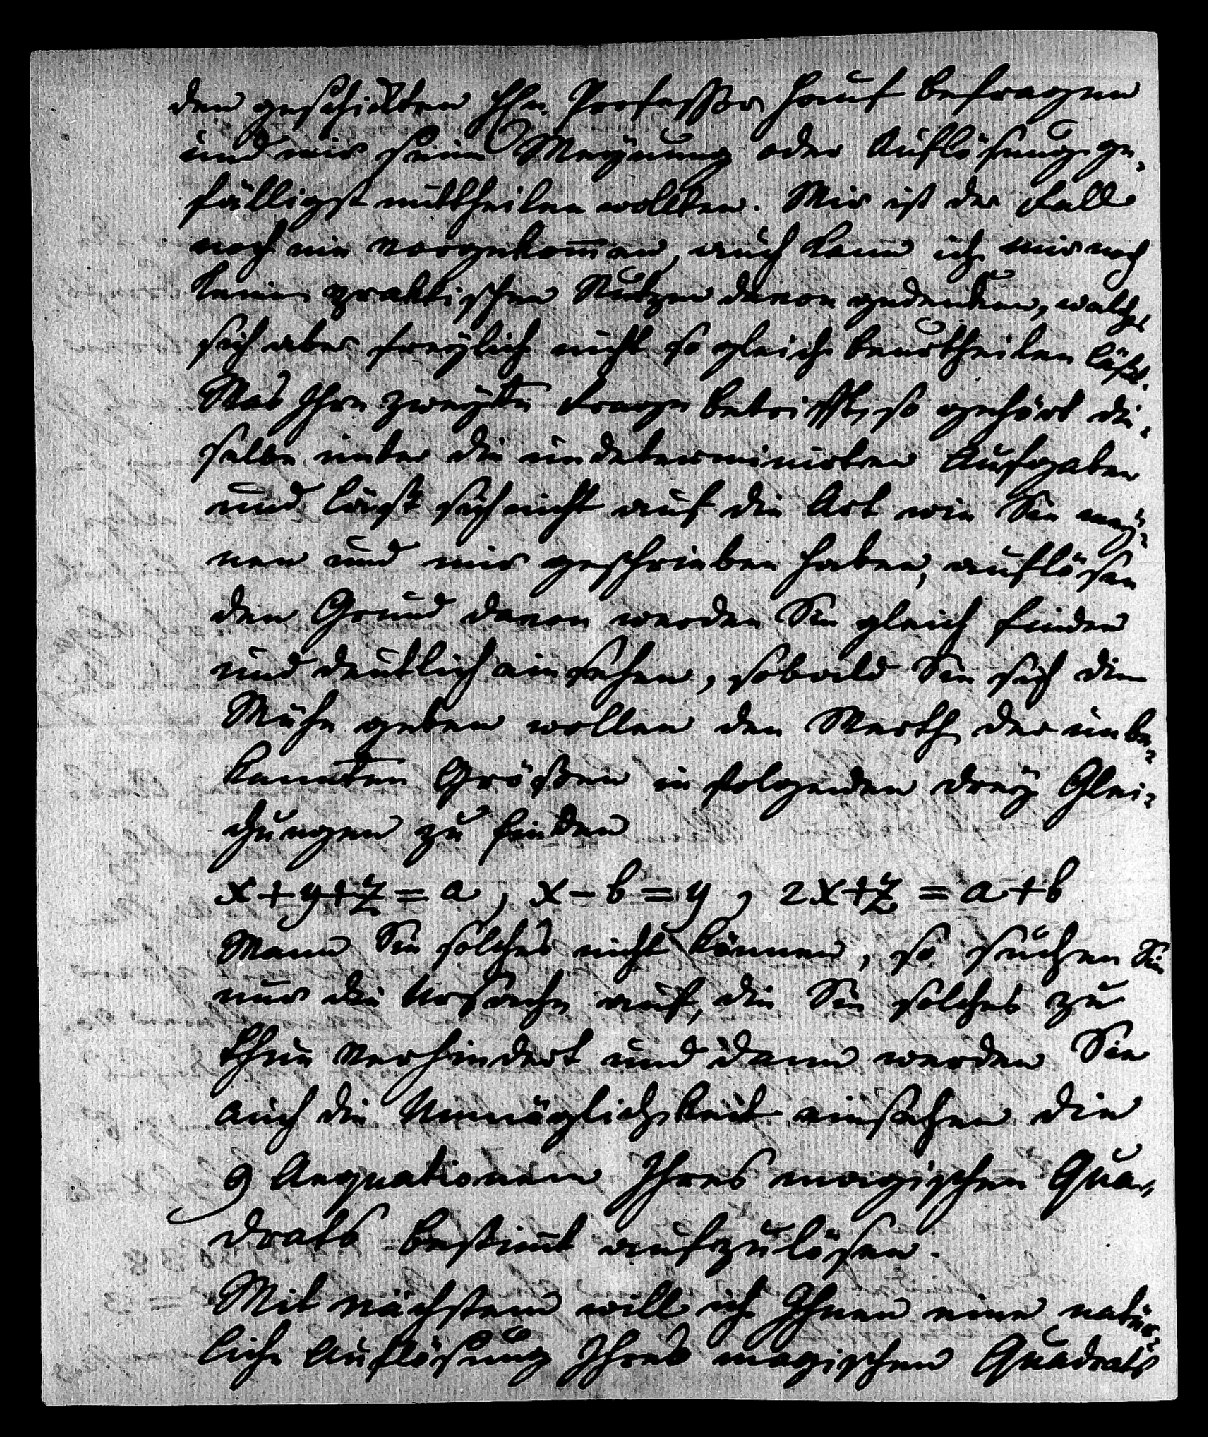 den geschickten Hn. Professor Hauf befragen
und mir seine Meynung oder Auflösung ge-
fälligst mittheilen wollten. Mir ist der Fall
noch nie vorgekom̄en, auch kann ich mir noch
keinen praktischen Nutzen davon gedenken, welches
sich aber freylich nicht so gleich beurtheilen läßt.
Was Ihre zweyte Frage betrifft, so gehört die-
selbe unter die indeterminirten Aufgaben
und läßt sich nicht auf die Art wie Sie mey-
nen und mir geschrieben haben, auflösen
den Grund davon werden Sie gleich finden
und deutlich einsehen, sobald Sie sich die
Mühe geben wollen den Werth der unbe-
kannten Größen in folgenden drey Glei-
chungen zu finden
x+y+z = a, x-b=y, 2x+z = a+b
Wann Sie solches nicht können, so suchen Sie
nur die Ursache auf, die Sie solches zu
thun verhindert und dann werden Sie
auch die Unmöglichkeit einsehen die
9 Aequationen Ihres magischen Qua-
drats bestim̄t aufzulösen.
Mit nächstem will ich Ihnen eine natür-
liche Auflösung Ihres magischen Quadrats